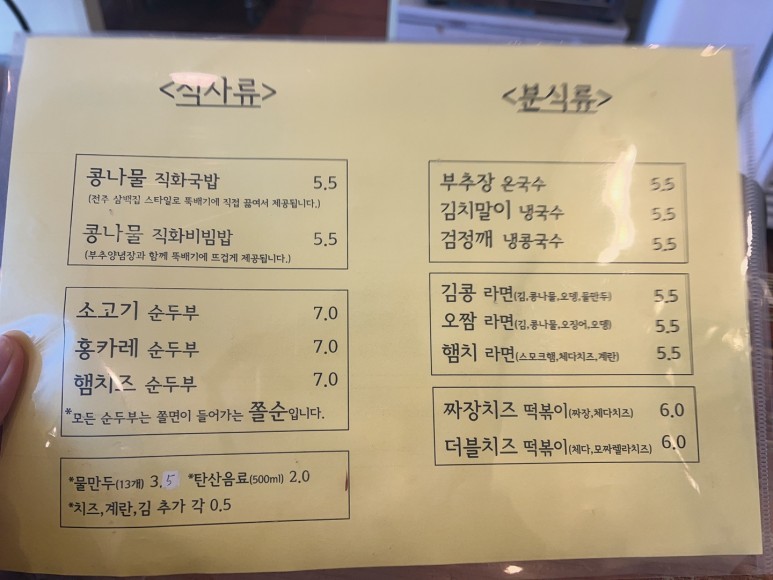 <식사류>
콩나물 직화국밥 5.5
(전주 삼백집 스타일로 뚝배기에 직접 끓여서 제공됩니다.)
콩나물 직화비빔밥 5.5
(부추양념장과 함께 뚝배기에 뜨겁게 제공됩니다.)
소고기 순두부 7.0
홍카레 순두부 7.0
햄치즈 순두부 7.0
*모든 순두부는 쫄면이 들어가는 쫄순입니다.
*물만두(13개) 3.5 *탄산음료(500ml) 2.0
*치즈,계란,김 추가 각 0.5
<분식류>
부추장 온국수 5.5
김치말이 냉국수 5.5
검정깨 냉콩국수 5.5
김콩 라면(김,콩나물,오뎅,물만두) 5.5
오짬 라면(김,콩나물,오징어,오뎅) 5.5
햄치 라면(스모크햄,체다치즈,계란) 5.5
짜장치즈 떡볶이(짜장,체다치즈) 6.0
더블치즈 떡볶이(체다,모짜렐라치즈) 6.0